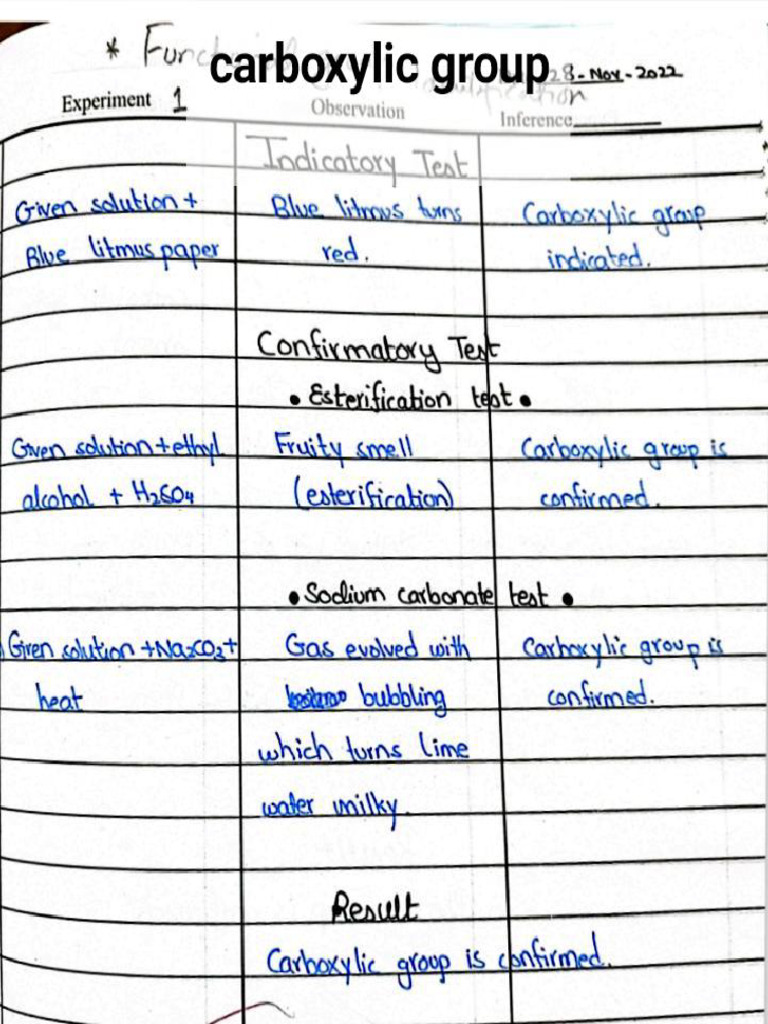 * Functional
carboxylic group
28-Nov-2022
Experiment 1 Observation Inference
Indicatory Test
Given solution + Blue litmus turns Carboxylic group
Blue litmus paper red. indicated.
Confirmatory Test
• Esterification test •
Given solution + ethyl Fruity smell Carboxylic group is
alcohol + H₂SO₄ (esterification) confirmed.
• Sodium carbonate test •
Given solution + Na₂CO₃ + Gas evolved with Carboxylic group is
heat bubbling confirmed.
which turns lime
water milky.
Result
Carboxylic group is confirmed.